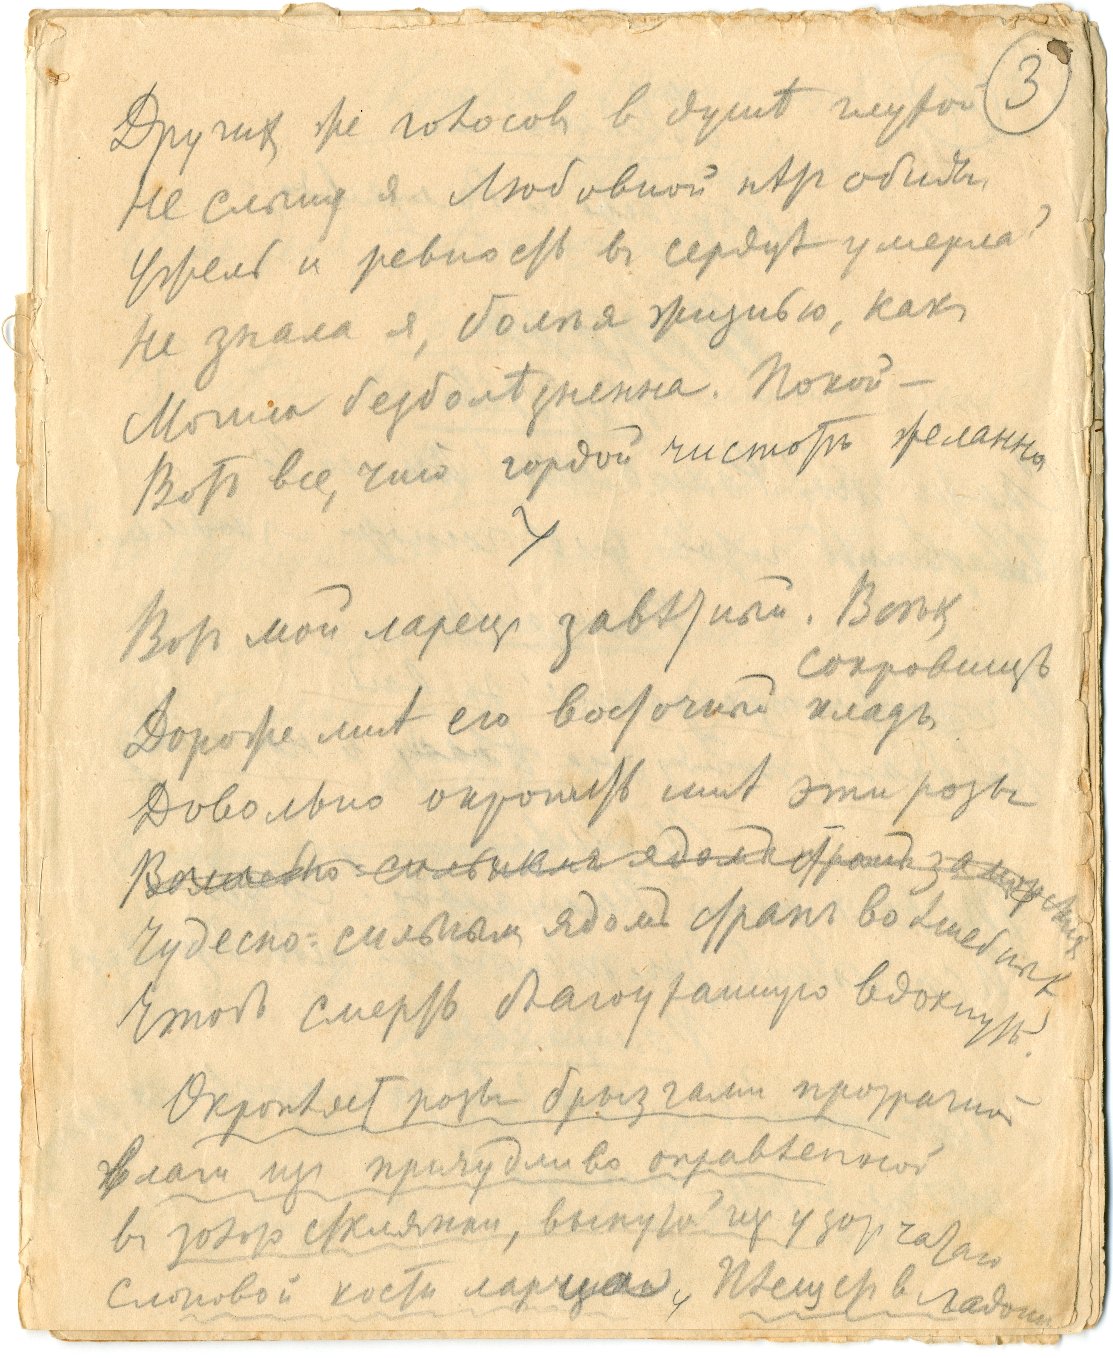 3
Другихъ же голосовъ в душѣ глухой
Не слышу я Любовной пѣ обиды
Ужель и ревность въ сердцѣ умерла?
Не знала я, больная жизнью, какъ
Могила безболѣзненна. Покой —
Вотъ все, что гордой чистотѣ желанно
Вотъ мой ларецъ завѣтный. Всѣхъ
сокровищъ
Дороже мнѣ его восточный кладъ
Довольно окропить мнѣ эти розы
Волшебно-сильнымъ ядомъ странъ заморскихъ
Чудесно-сильнымъ ядомъ странъ волшебныхъ
Чтобъ смерть благоуханную вдохнуть.
Окропляетъ розы брызгами прозрачной
влаги изъ причудливо оправленной
въ золото стклянки, вынутой изъ узорчатаго
слоновой кости ларца, Плещетъ в ладони